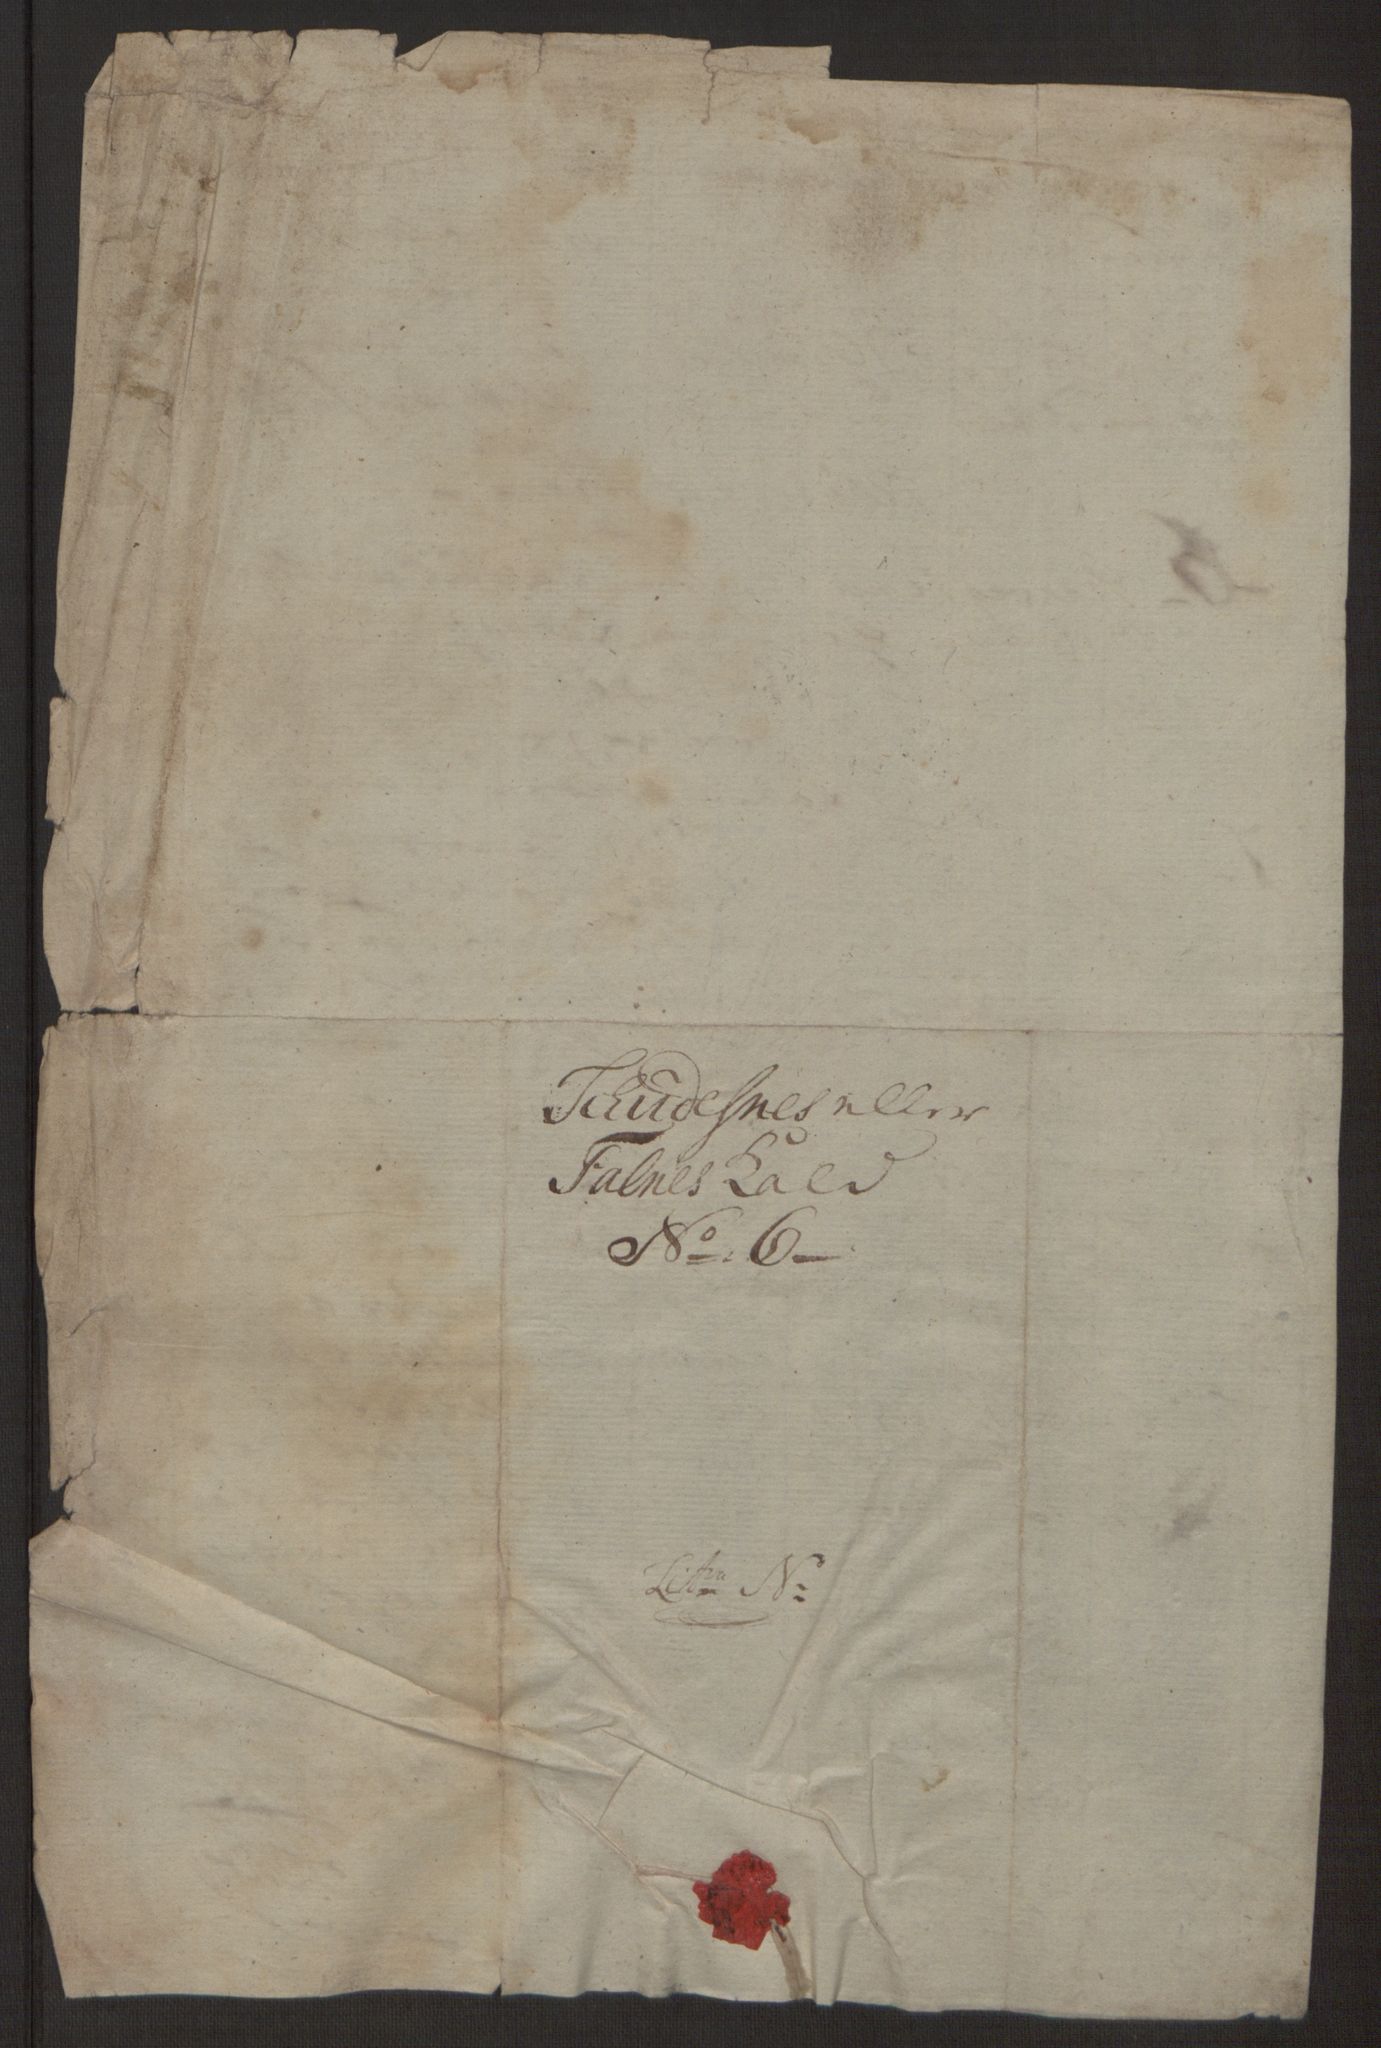 Schudesnes eller
Falnes Kald
No. 6
Litra No